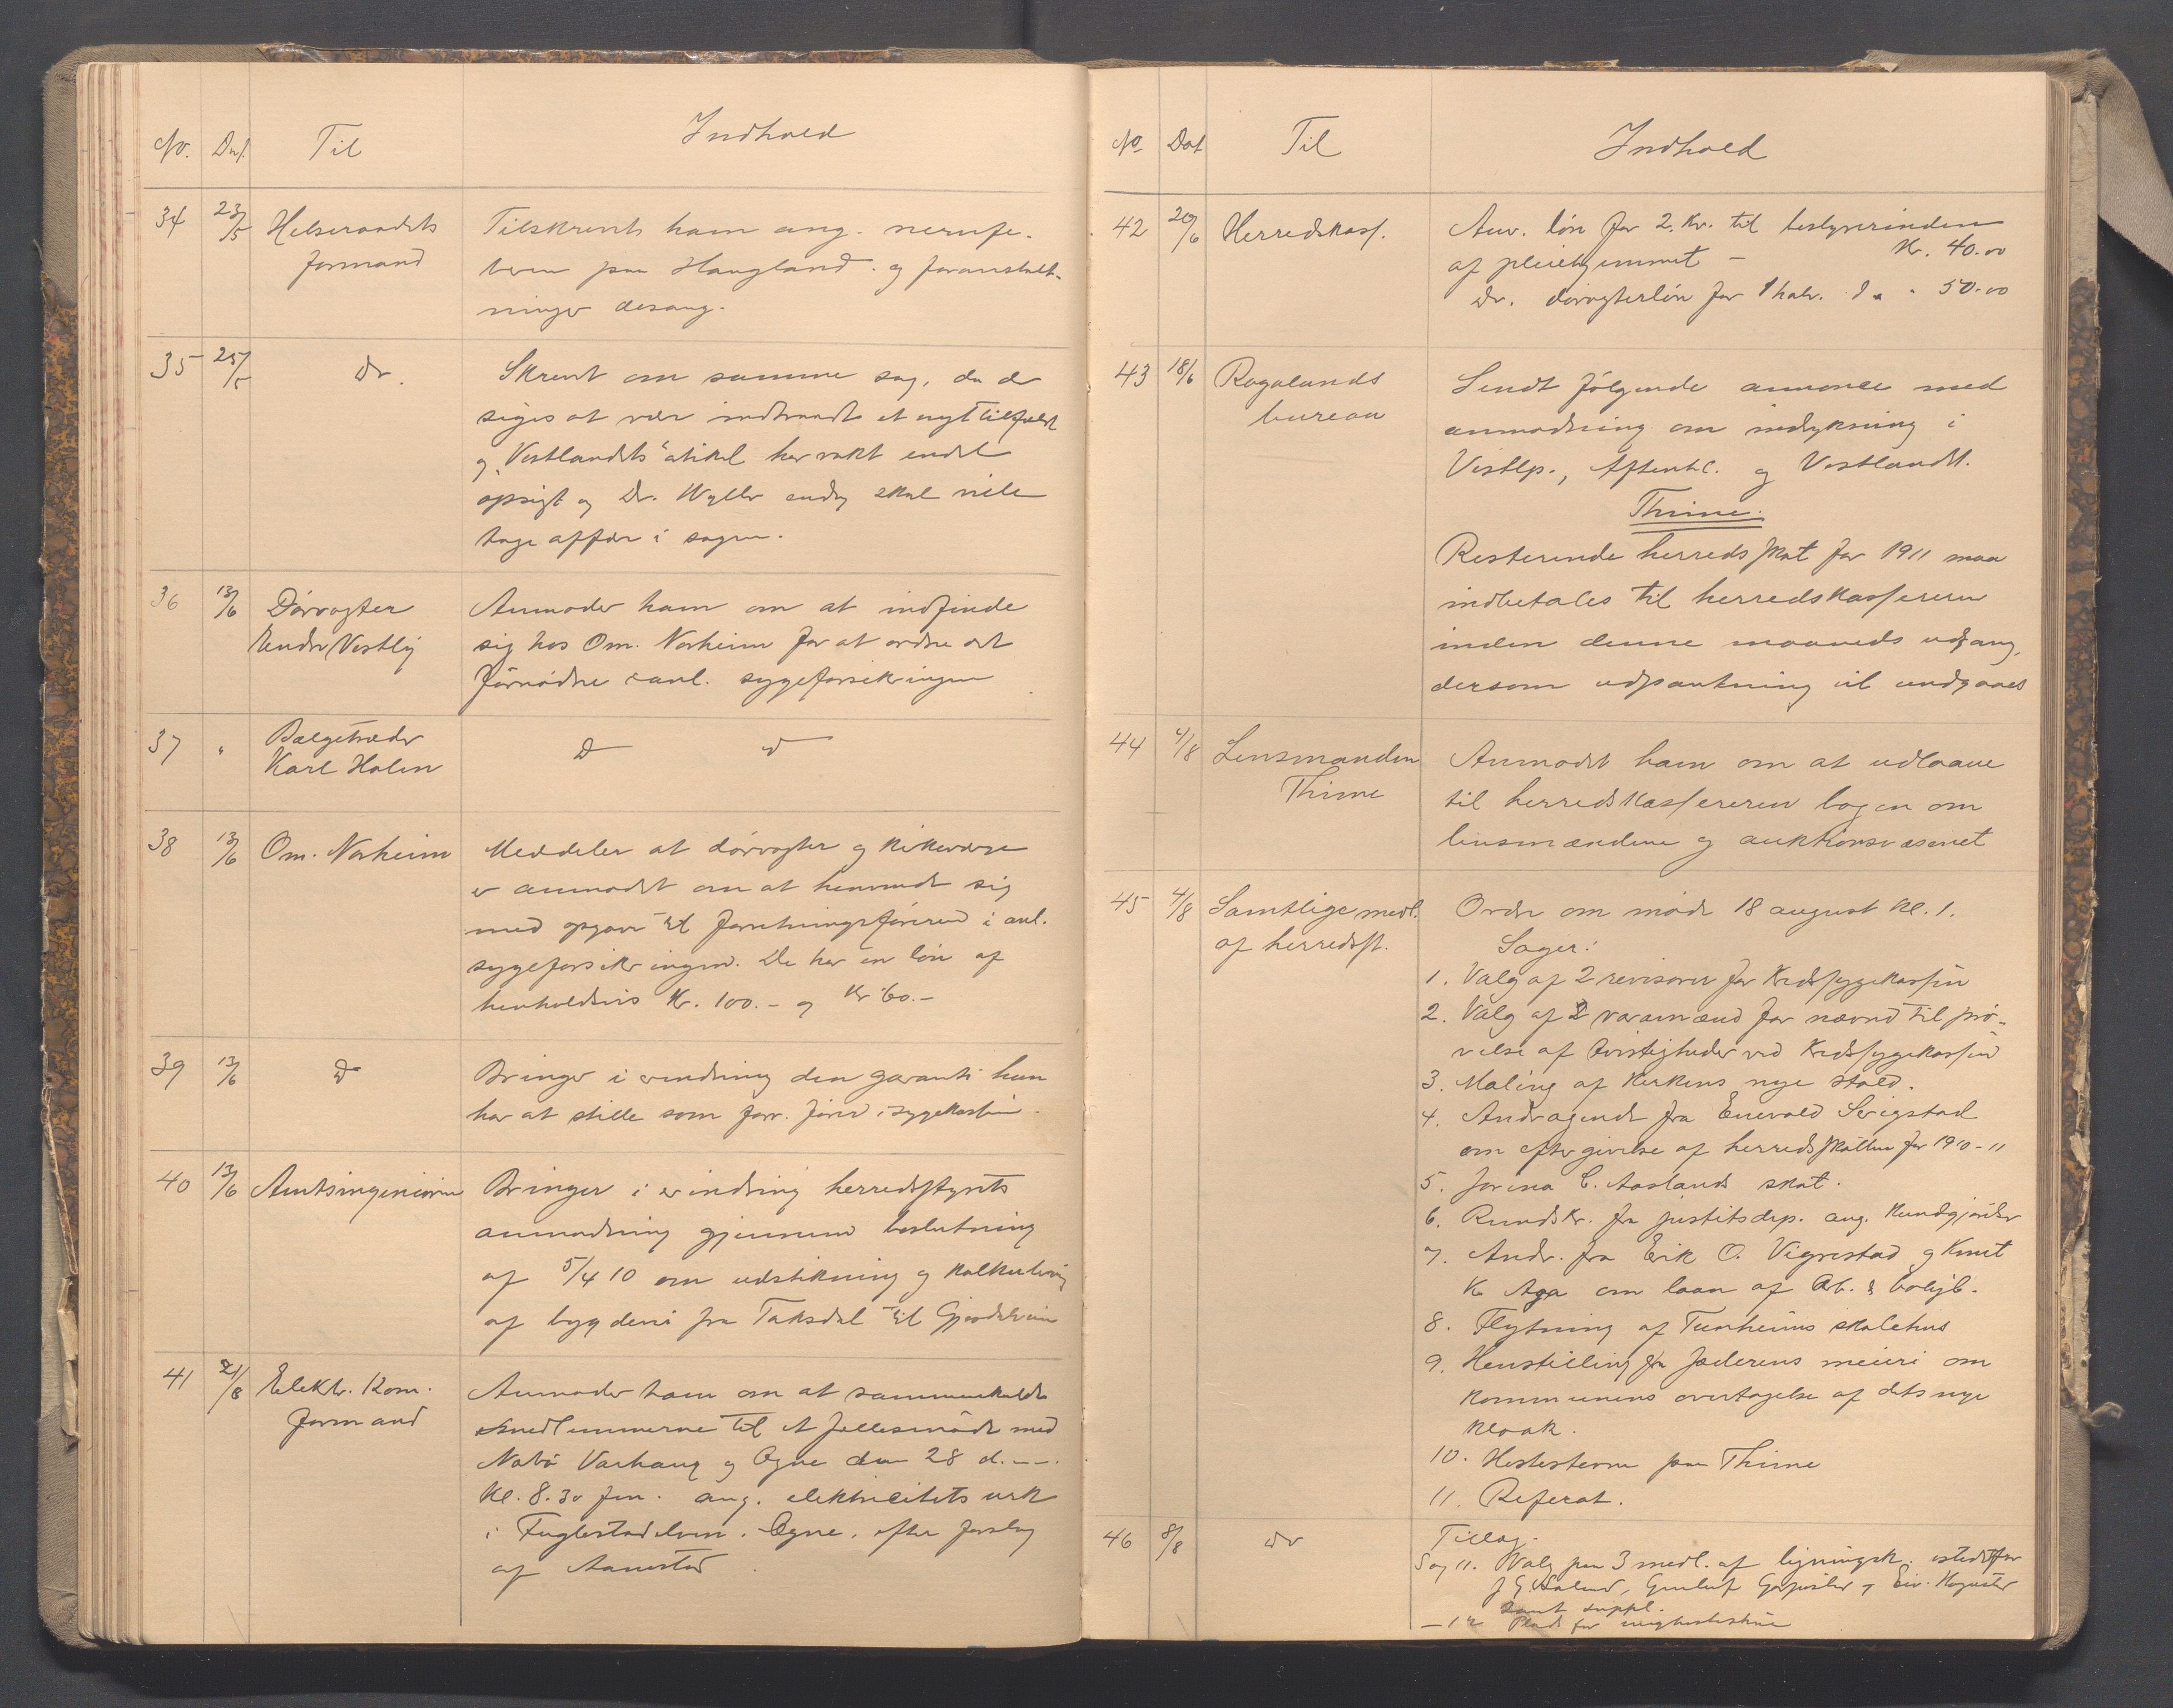 No. Dat. Til Indhold
34 23/5 Helseraadets formand
Tilskrevet ham ang. nervefe-
beren paa Haugland. og foranstalt-
ninger desang.
35 25/5 Do.
Skrevet om samme sag, da der
siges at være indtraadt et nyt tilfælde
og "Vestlandets" artikel har vakt endel
opsigt og Dr. Wyller endog skal ville
tage affære i sagen.
36 13/6 Dørvogter
Endre Vestly
Anmoder ham om at indfinde
sig hos Om. Norheim for at ordne det
fornødne anl. sygeforsikringen
37 " Bælgetræder
Karl Holen
Do do
38 13/6 Om. Norheim
Meddeler at dørvogter og kirkeværge
er anmodet om at henvende sig
med opgave til forretningsføreren i anl.
sygeforsikringen. De har en løn af
henholdsvis Kr. 100.- og Kr 60.-
39 13/6 Do
Bringer i erindring den garanti han
har at stille som forr. fører i sygekassen.
40 13/6 Amtsingeniøren
Bringer i erindring herredsstyrets
anmodning gjennem beslutning
af 5/4 10 om udstikning og kalkulering
af bygdevei fra Taksdal til
41 21/8 Elektr. Kom.
formand
Anmoder ham om at sammenkalde
medlemmerne til et fællesmøde med
Nærbø Varhaug og Ogne den 28 d.--.
Kl. 8.30 fm. ang. elektricitetsverk
i Fuglestadelven. Ogne, efter forslag
af Aanestad.
No Dat Til Indhold
42 20/6 Herredskass.
Anv. løn for 2. kv. til bestyrerinden
af pleiehjemmet - Kr. 40.00
Do. dørvogterløn for 1 halv. d " " 50.00
43 18/6 Rogalands
bureau
Sendt følgende annonce med
anmodning om indrykning i
Vestlp., Aftenbl. og Vestlandet.
Thime.
Resterende herredsskat for 1911 maa
indbetales til herredskassereren
inden denne maaneds udgang,
dersom udpantning vil undgaaes
44 4/8 Lensmanden
Thime
Anmodet ham om at udlaane
til herredskassereren bogen om
lensmændene og auktionsvæsenet
45 4/8 Samtlige medl.
af herredsst.
Ordre om møde 18 august kl. 1.
Sager:
1. Valg af 2 revisorer for Kredssygekassen
2. Valg af 2 varamænd for nævnd til prø-
velse af tvistigheder ved Kredssygekassen
3. Maling af kirkens nye stald.
4. Andragende fra Enevald Serigstad
om eftergivelse af herredsskatten for 1910-11
5. Jorina C. Aaslands skat.
6. Rundskr. fra justitsdep. ang. kundgjørelser
7. Andr. fra Erik O. Vigrestad og Knut
K Aga om laan af Arb. & boligb.
8. Flytning af Tunheims skolehus
9. Henstilling fra Jæderens meieri om
kommunens overtagelse af dets nye
kloak.
10. Hestestevne paa Thime
11. Referat.
46 8/8 do
Tillæg.
Sag 11. Valg paa 3 medl. af ligningsk. istedetfor
samt suppl.
— 12 Plads for